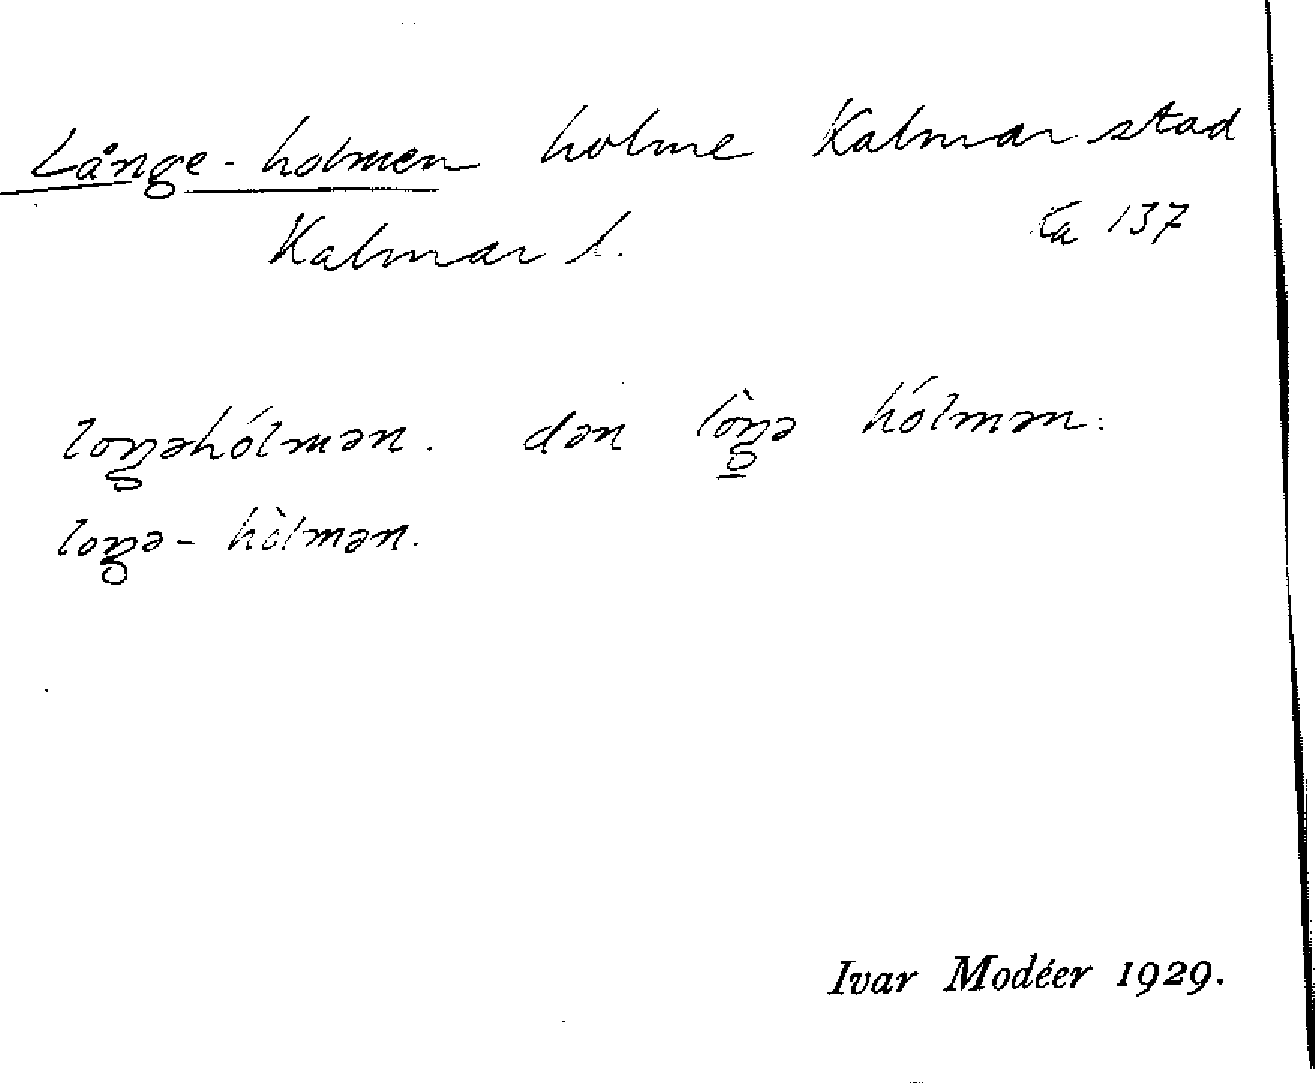 Långe-holmen holme Kalmar stad
Kalmar l. Ea 137
loŋəhólmən. dən lòŋə hólmən.
loŋə- hòlmən.
Ivar Modéer 1929.